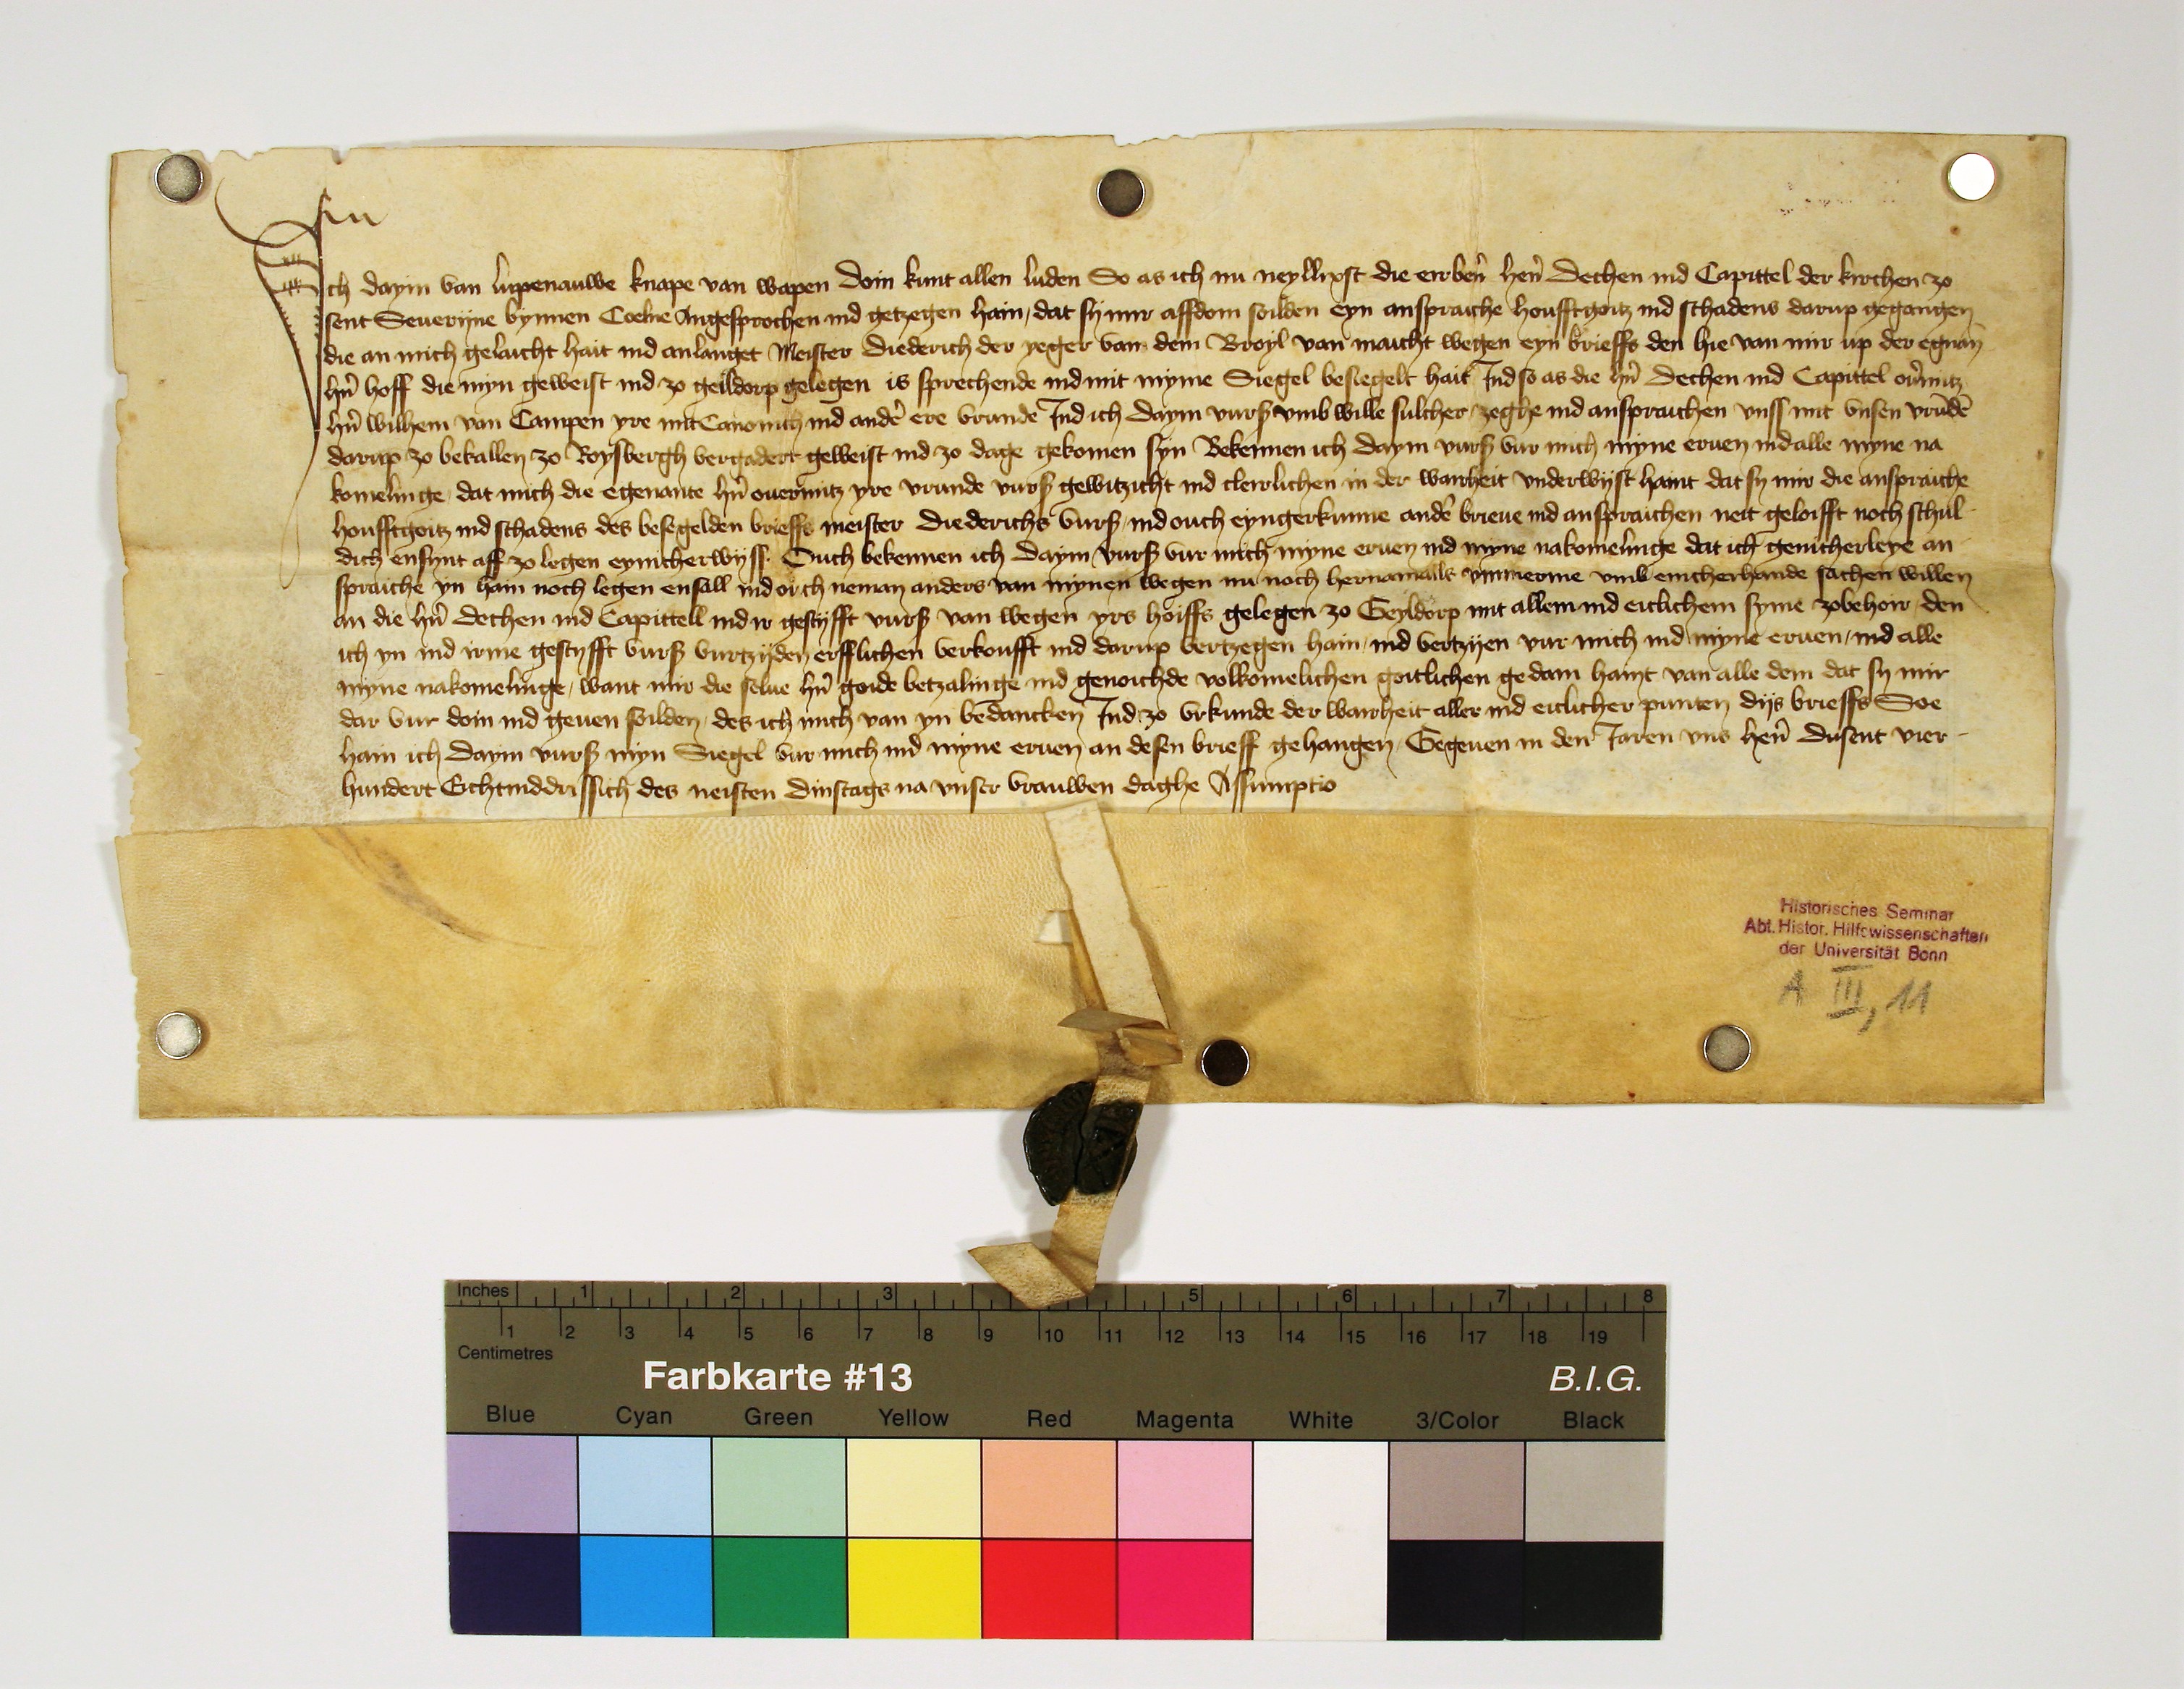 Ich daym van lupenauwe knape van wapen Doin kunt allen luden So as ich nu neyllixst die eirber̄ her̄ dechen ind Capittel der kirchen zo
sent Seuerijne bynnen Coelne Angesprochen ind getzegen hain, dat sij mir affdoin soilden eyn ansprache heufftgoitz ind schadens darup gegangen
die an mich gelaicht hait ind anlanget Meister Diederich der yeger van dem Broyl van maicht wegen eyn brieffs den hie van mir up der egnan̄
hn̄ hoff die myn geweist ind zo geildorp gelegen is sprechende ind mit myme Siegel besiegelt hait Ind so as die hn̄ Dechen ind Capittel ou̓mitz
hn̄ wilhem van Campen yre mit Canonich ind ander̄ ere vrunde Ind ich daym vurß vmb wille sulcher zeghe ind anspraichen vnss mit vnsen vrūdē
darup zo bekallen zo Roysbergh vergadert geweist ind zo dage gekomen syn Bekennen ich daym vurß vur mich myne eruen ind alle myne na
komelinge, dat mich die egenante hn̄ ouermitz yre vrunde vurß gewitzicht ind cleirlichen in der wairheit vnderwijst haint dat sy mir die anspraiche
heufftgoitz ind schadens des besegelden brieffs meister Diederichs vurß, ind ouch eyngerkunne ander̄ brieue ind anspraichen neit geloifft noch schul-
dich ensynt aff zo legen eynicherwijss. Ouch bekennen ich daym vurß vur mich myne eruen ind myne nakomelinge dat ich genicherleye an-
spraiche yn hain noch legen ensall ind ouch neman anders van mynen wegen nu noch hernamails vmmerme vmb enicherhande sachen willen
an die hn̄ dechen ind Capittell ind ir gestijfft vurß van wegen yrs hoiffs gelegen zo Geyldorp mit allem ind eitlichem syme zobehoir, den
ich yn ind irme gestijfft vurß vurtzijden erfflichen verkoufft ind darup vertzegen hain, ind vertzijen vur mich ind myne eruen, ind alle
myne nakomelinge, want mir die selue hn̄ goide betzalinge ind genoichde volkomelichen goitlichen gedain haint van alle dem dat sy mir
dar vur doin ind geuen soilden, des ich mich van yn bedancken Ind zo vrkunde der wairheit aller ind eitlicher punten dijs brieffs Soe
hain ich daym vurß myn Siegel vur mich ind myne eruen an desen brieff gehangen, Gegeuen in den Jaren vns her̄n dusent vier-
hundert Echtinddrissich des neisten dinstags na vnser vrauwen daghe Assumptio
Historisches Seminar
Abt. Histor. Hilfswissenschaften
der Universität Bonn
A III, 11
Inches 1 2 3 5 6 7 8
1 2 3 4 5 6 7 8 9 10 11 12 13 14 15 16 17 18 19
Centimetres
Farbkarte #13 B.I.G.
Blue Cyan Green Yellow Red Magenta White 3/Color Black